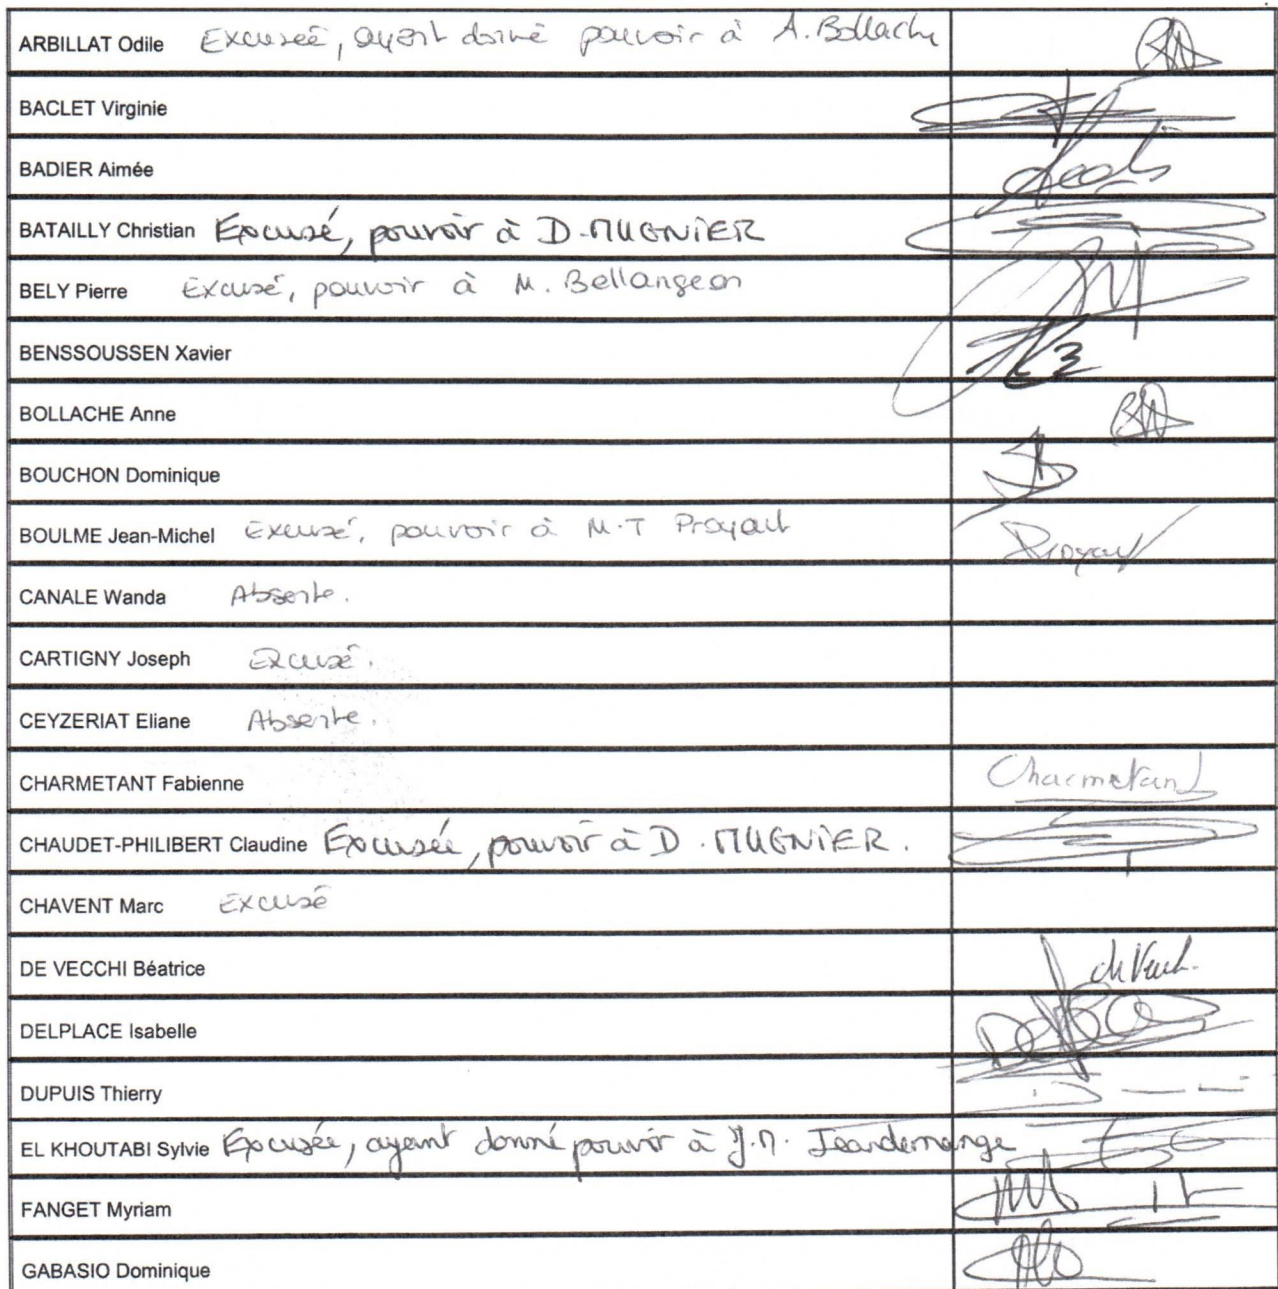 ARBILLAT Odile Excusée, ayant donné pouvoir à A. Bollache
BACLET Virginie
BADIER Aimée
BATAILLY Christian Excusé, pouvoir à D. MUGNIER
BELY Pierre Excusé, pouvoir à M. Bellangeon
BENSSOUSSEN Xavier
BOLLACHE Anne
BOUCHON Dominique
BOULME Jean-Michel Excusé, pouvoir à M.T Prayart
CANALE Wanda Absente.
CARTIGNY Joseph Excusé.
CEYZERIAT Eliane Absente.
CHARMETANT Fabienne Charmetant
CHAUDET-PHILIBERT Claudine Excusée, pouvoir à D. MUGNIER.
CHAVENT Marc Excusé
DE VECCHI Béatrice
DELPLACE Isabelle
DUPUIS Thierry
EL KHOUTABI Sylvie Excusée, ayant donné pouvoir à J.M. Jeandemange
FANGET Myriam
GABASIO Dominique